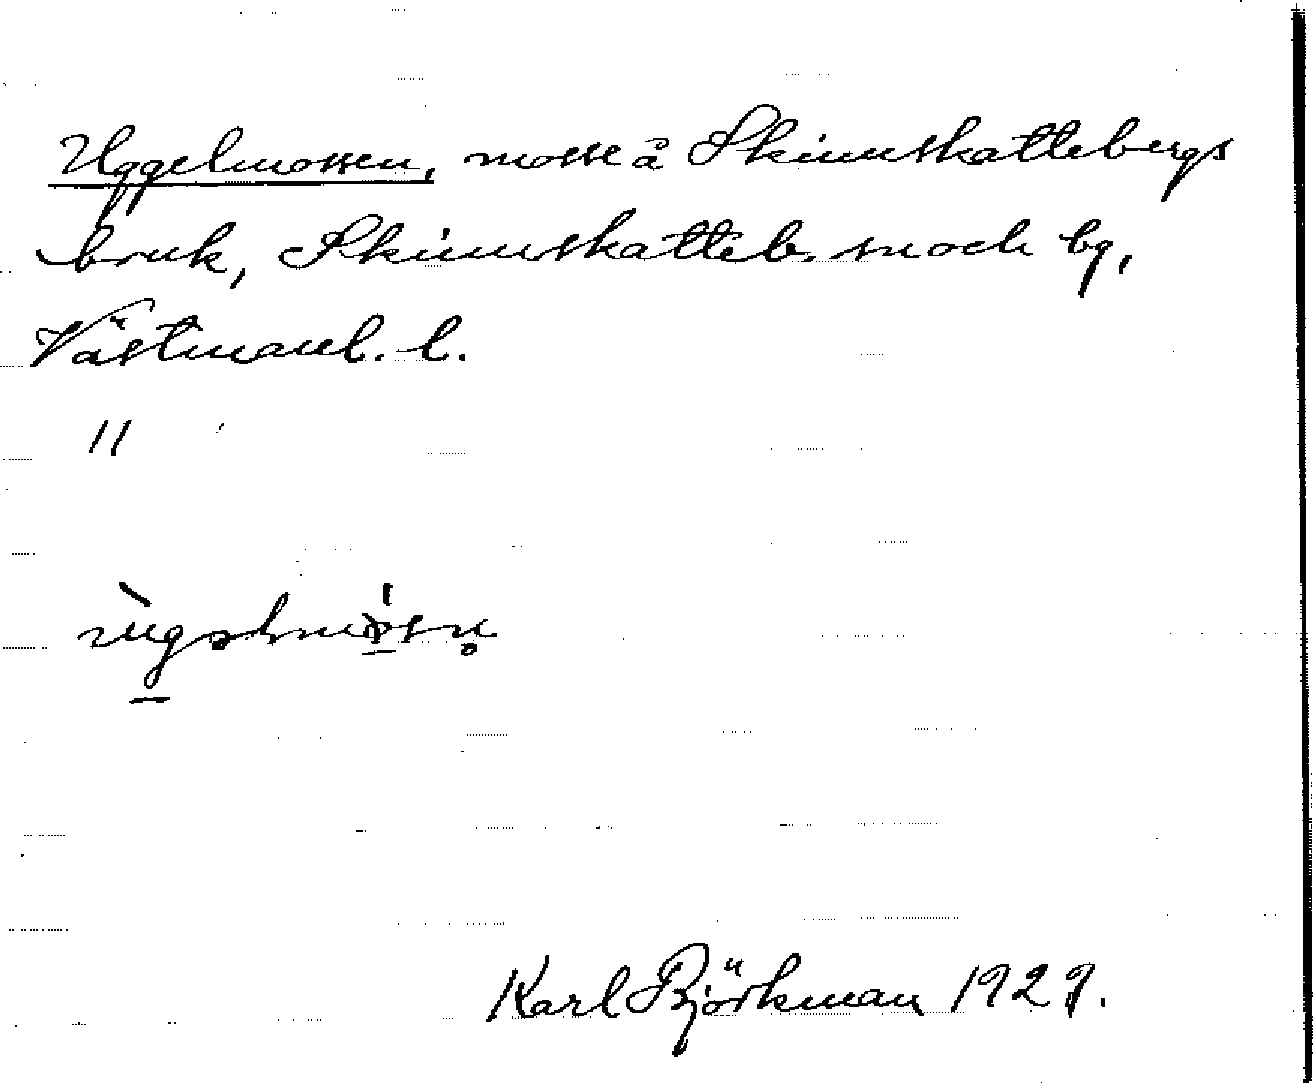 Uggelmossen, mosse å Skinnskattebergs
bruk, Skinnskatteb. sn och bg,
Västmanl. l.
11
Karl Björkman 1929.